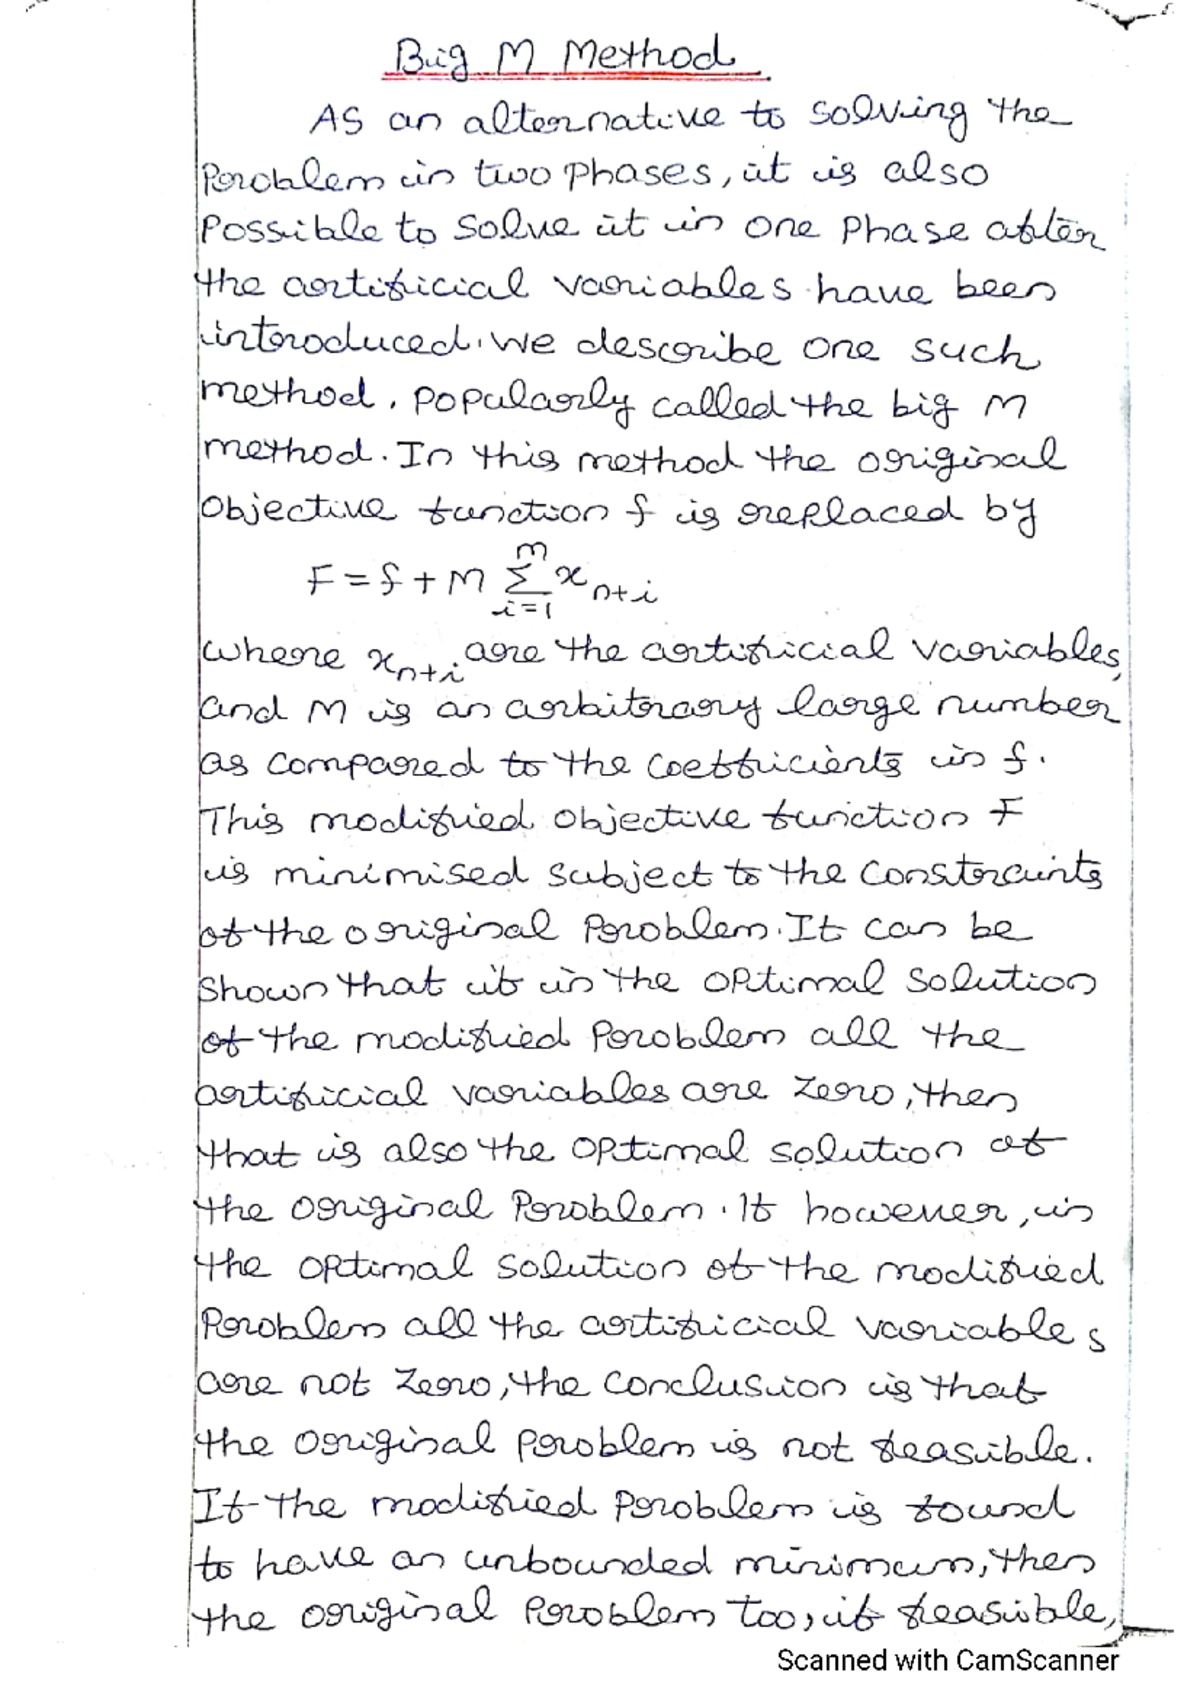 Big M Method
As an alternative to solving the
Problem in two phases, it is also
possible to solve it in one phase after
the artificial variables have been
introduced. We describe one such
method. popularly called the big M
method. In this method the original
objective function f is replaced by
F = f + M \sum_{i=1}^{m} x_{n+i}
where x_{n+i} are the artificial variables,
and M is an arbitrary large number
as compared to the coefficients in f.
This modified objective function F
is minimised subject to the constraints
of the original problem. It can be
shown that if in the optimal solution
of the modified problem all the
artificial variables are zero, then
that is also the optimal solution of
the original problem. If however, in
the optimal solution of the modified
problem all the artificial variables
are not zero, the conclusion is that
the original problem is not feasible.
If the modified problem is found
to have an unbounded minimum, then
the original problem too, if feasible,
Scanned with CamScanner